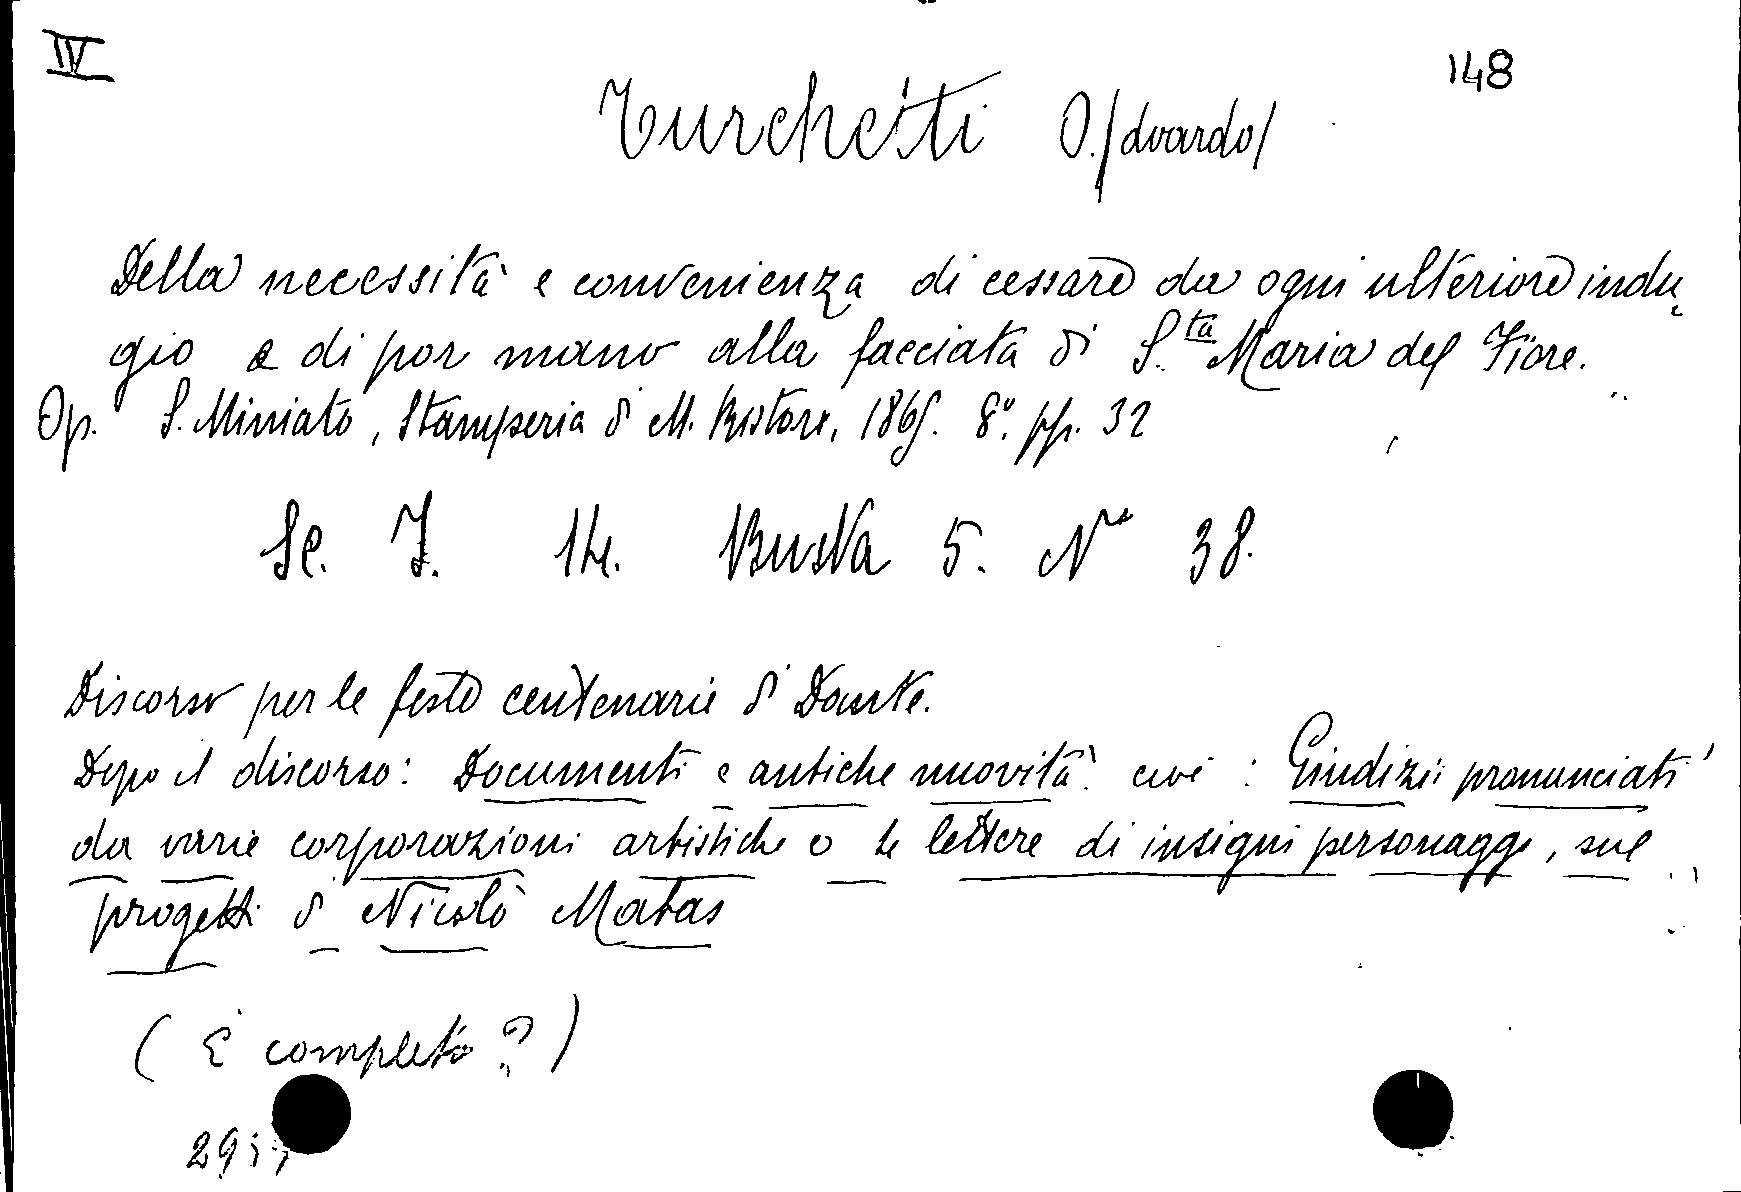 IV
148
Turchetti O./doardo/
Della necessità e convenienza di cessare da ogni ulteriore indu
gio e di por mano alla facciata di S.ta Maria del Fiore.
Op. S. Miniato, Stamperia di M. Ristori, 1865. 8º. pp. 32
Sc. I. 14. Busta 5. No 38.
Discorso per le feste centenarie di Dante.
Dopo il discorso: Documenti e antiche nuovità cioè: Giudizii pronunciati
da varie corporazioni artistiche o le lettere di insigni personaggi, sul
progetti di Nicolò Matas
(È completo?)